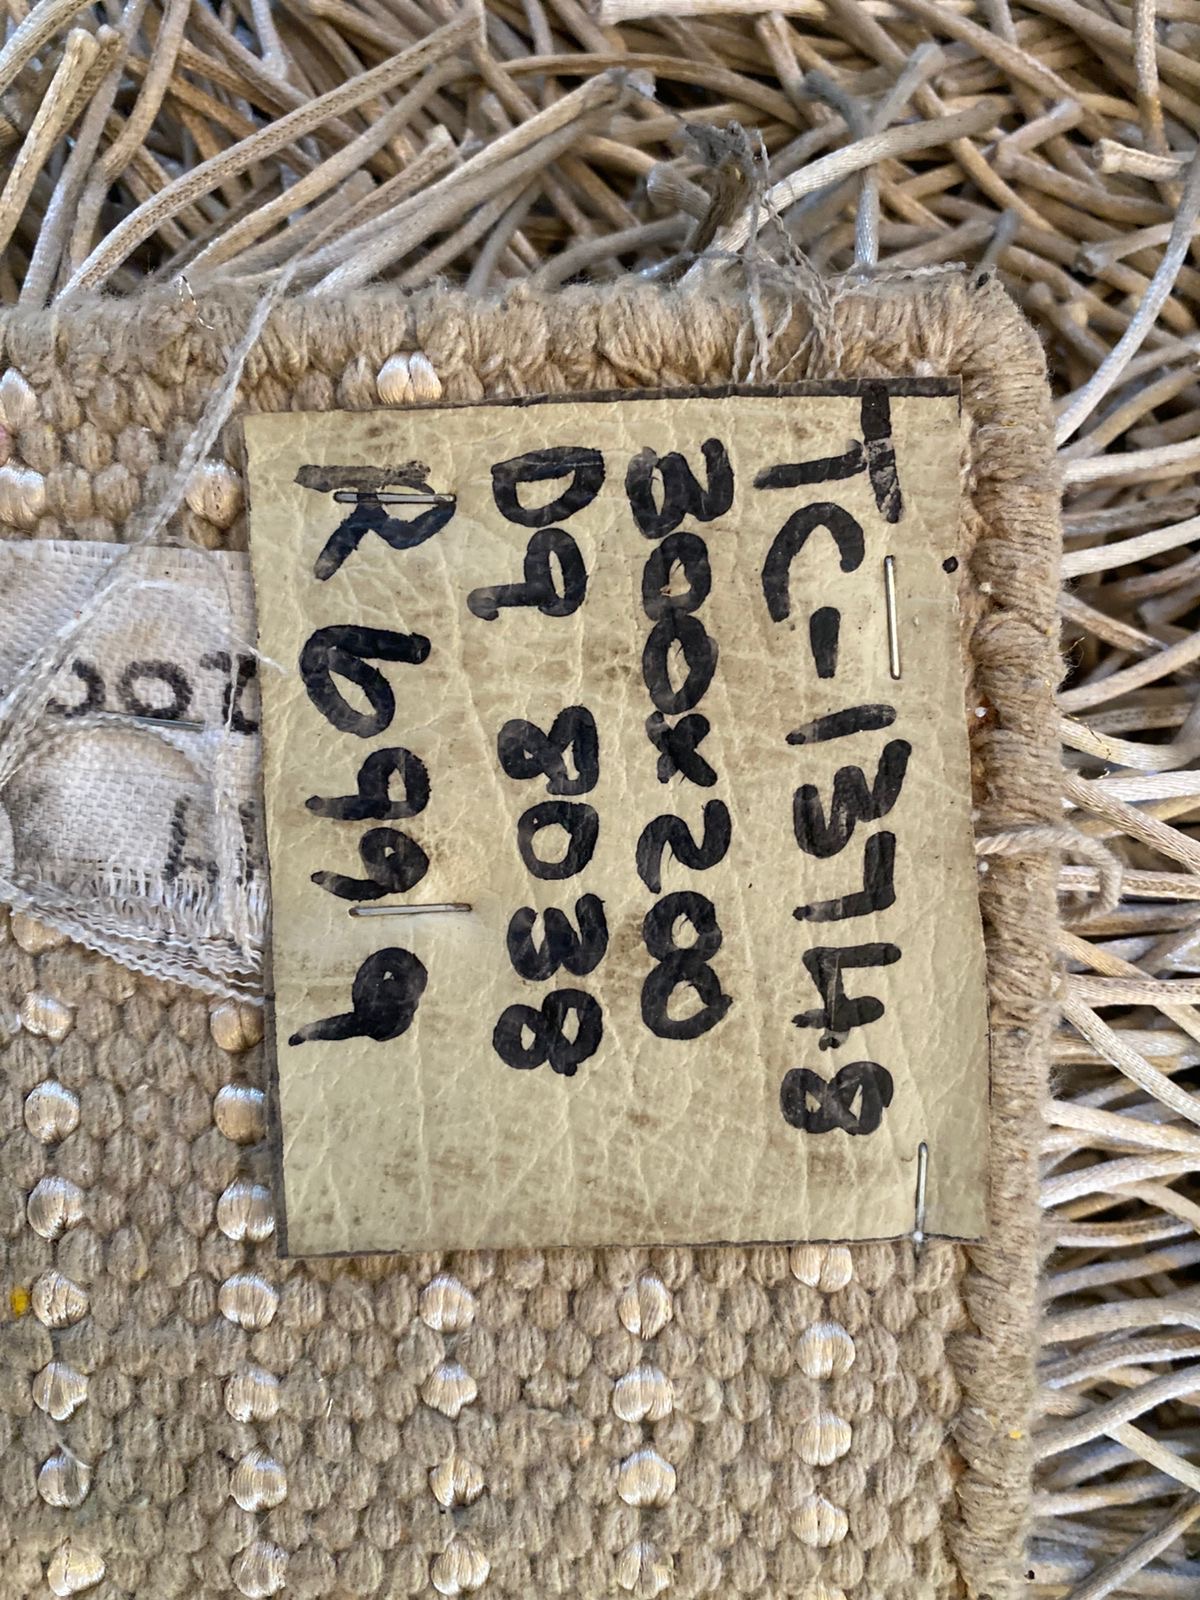 TC-13748
300x200
D9 8038
R 6999